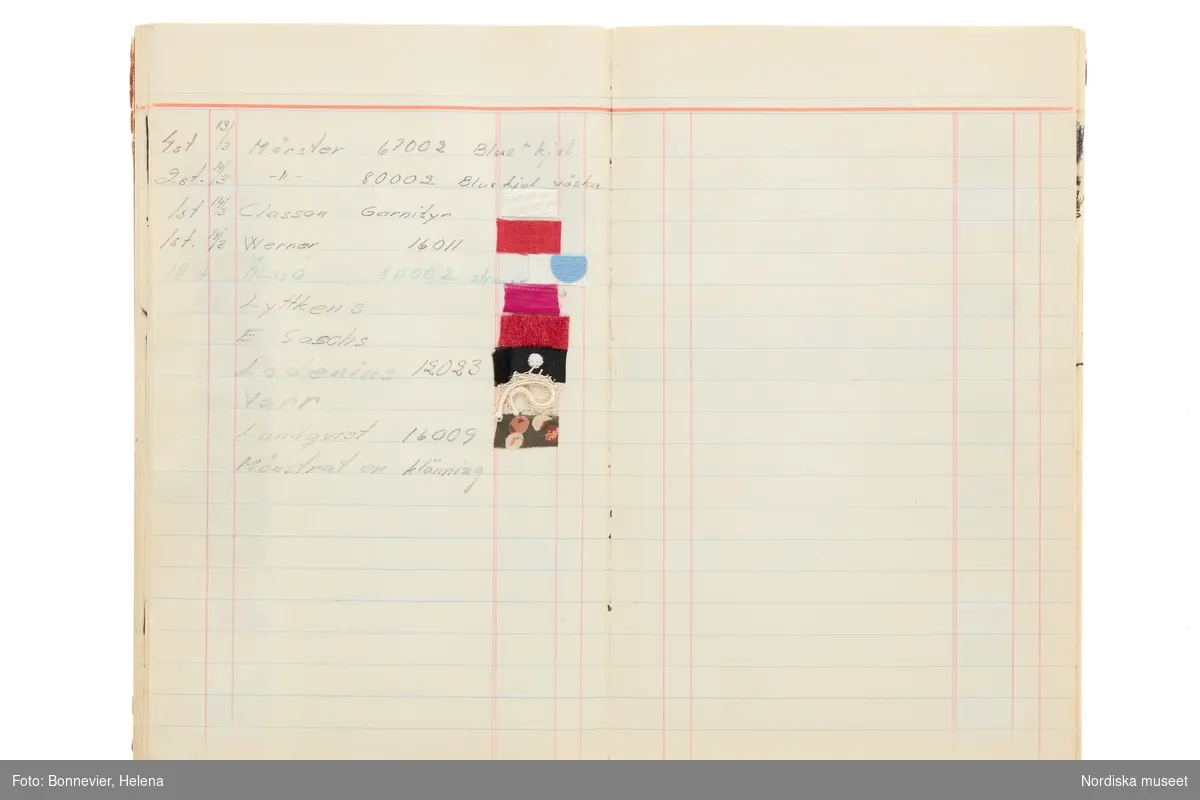 4st 13/3 Mönster 67002 Blus + kjol
2st. 14/3 -"- 80002 Blus kjol väska
1st 14/3 Classon Garnityr
1st. 14/2 Werner 16011
80002
Lyttkens
E Saschs
Lodenius 12023
Lundqvist 16009
Mönstrat en klänning
Foto: Bonnevier, Helena
Nordiska museet